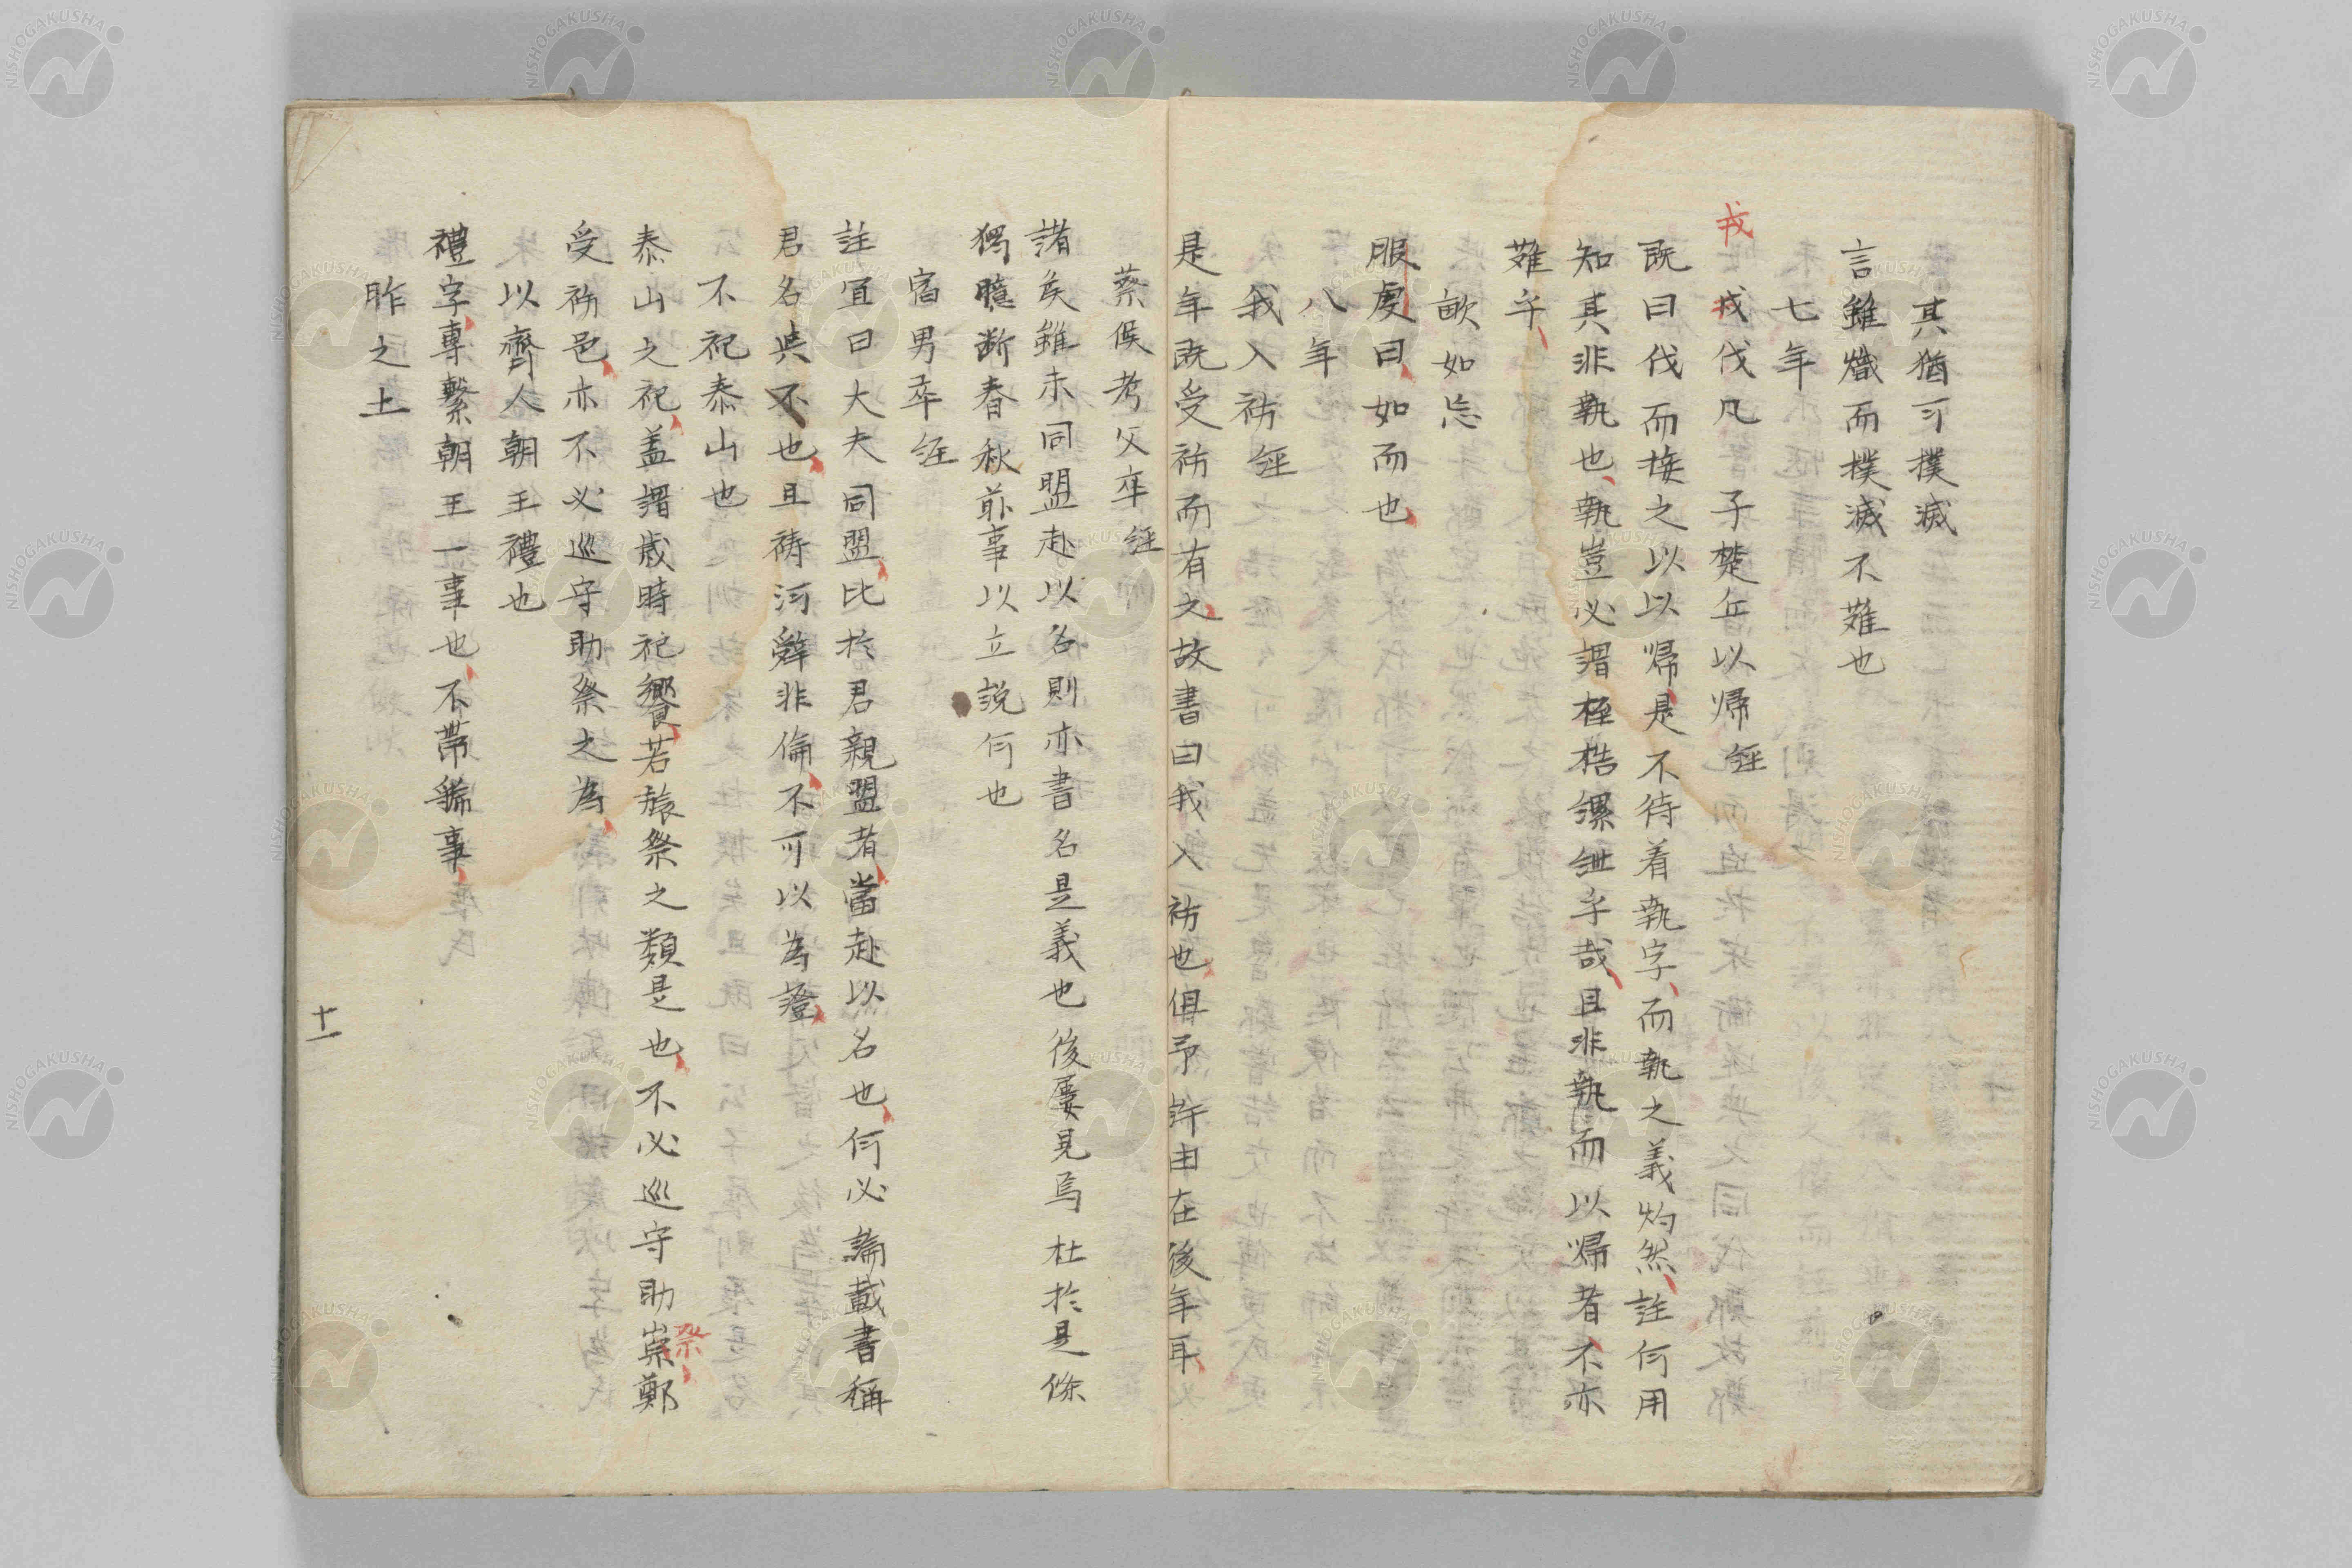 其猶可撲滅
言雖熾而撲滅不難也
七年
戎
戎伐凡子楚丘以帰經
既曰伐而接之以以帰是不待着執字而執之義灼然註何用
知其非執也執豈必謂桎梏縲紲乎哉且非執而以帰者不亦
難乎
歃如忘
服虔曰如而也
八年
我入祊經
是年既受祊而有之故書曰我入祊也俱予許田在後年耳
蔡侯考父卒經
諸侯雖未同盟赴以名則亦書名是義也後屡見焉杜於是條
獨臆断春秋前事以立説何也
宿男卒經
註冝曰大夫同盟比於君親盟者當赴以名也何必論載書稱
君名与不也且祷河辭非倫不可以為證
不祀泰山也
泰山之祀盖謂歳時祀饗若旅祭之類是也不必巡守助崇鄭
祭
受祊邑亦不必巡守助祭之為
以齊人朝王禮也
禮字專繫朝王一事也不帶緐事
胙之土
十一